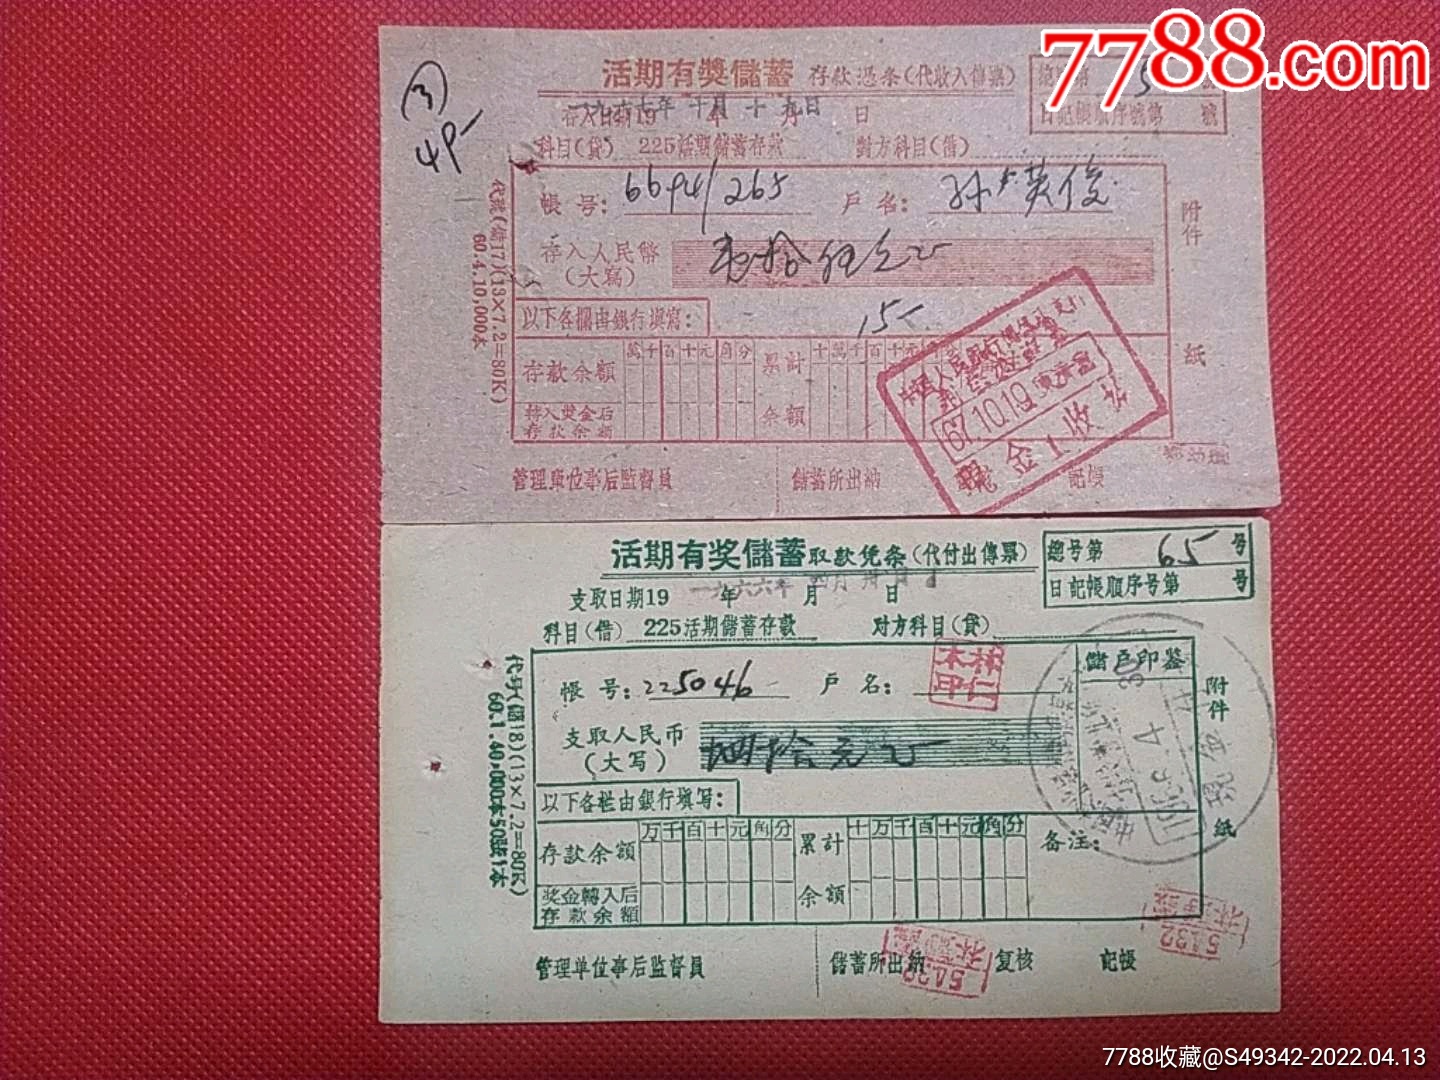 7788.com
活期有獎儲蓄 存款憑条(代收入傳票)
一九六七年 十月 十九日
存入日期19 年 月 日
日記帳順序號第 號
科目(貸) 225活期儲蓄存款 對方科目(借)
③
帳 号: 6694/265 戶 名:
代號(儲17)(13×7.2=80K)
60.4.10,000本
存入人民幣
(大寫)
壹拾伍元
附件 紙
以下各欄由銀行填寫:
15-
萬千百十元角分
存款余額 累計 余額
轉入獎金后
存款余額
67.10.19
現金收讫
管理單位事后監督員 儲蓄所出納 記帳
活期有奖儲蓄 取款凭条(代付出傳票)
總号第 65 号
一九六六年 四月 卅日
支取日期19 年 月 日
日記帳順序号第 号
科目(借) 225活期儲蓄存款 对方科目(貸)
帳 号: 225046 戶 名:
林仁木印
儲戶印鉴
代号(儲18)(13×7.2=80K)
60.1.40.000本50張1本
支取人民币
(大写)
四拾元
附件 紙
以下各栏由銀行填写:
万千百十元角分
十万千百十元角分
存款余額 累計 余額
备注:
奖金轉入后
存款余額
管理單位事后監督員 儲蓄所出納 复核 記帳
7788收藏@S49342-2022.04.13